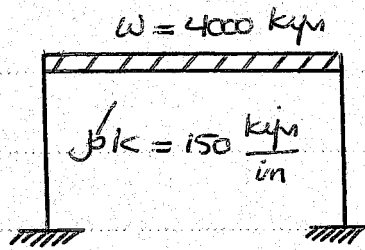 W = 4000 kips
k کل = 150 kips/in